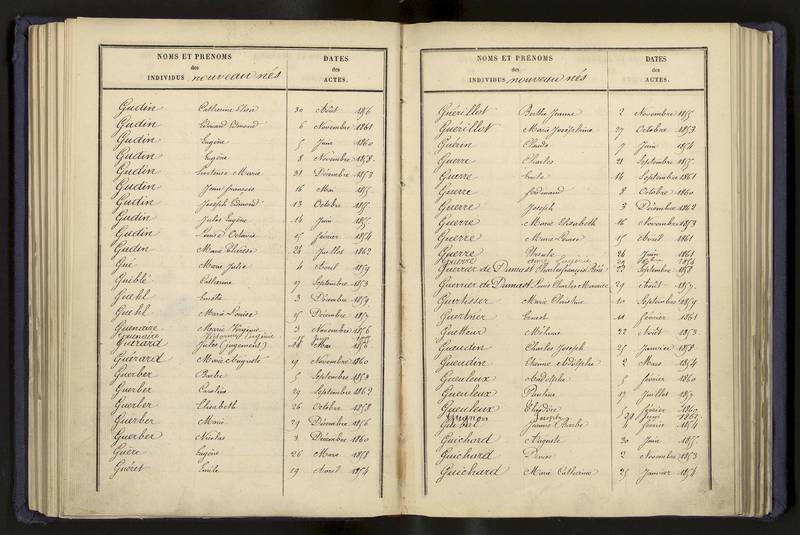 NOMS ET PRÉNOMS
des
INDIVIDUS nouveau nés
DATES
des
ACTES.
Gudin Catherine 30 Août 1856
Gudin Edmond 6 Novembre 1861
Gudin Eugène 5 Juin 1860
Gudin Eugène 8 Novembre 1858
Gudin Marie 31 Décembre 1853
Gudin Jean françois 16 Mai 1855
Gudin Joseph Edmond 13 Octobre 1855
Gudin Jules Eugène 14 Juin 1855
Gudin Louise Octavie 15 février 1854
Gudin Marie Thérèse 24 Juillet 1862
Gué Marie Julie 4 Avril 1859
Gueblé Catherine 19 Septembre 1853
Guehl 3 Décembre 1859
Guehl Marie Louise 15 Décembre 1857
Guenaire Marie Virginie 3 Novembre 1856
Guenaire
Guérard Jules (jugement) Mai 1856
Guérard Marie Auguste 19 Novembre 1860
Guerber Barbe 5 Septembre 1853
Guerber Caroline 29 Septembre 1862
Guerber Elisabeth 26 Octobre 1858
Guerber Marie 29 Décembre 1856
Guerber Nicolas 3 Décembre 1860
Guere Eugène 26 Mars 1858
Gueret Emile 19 Avril 1854
NOMS ET PRÉNOMS
des
INDIVIDUS nouveau nés
DATES
des
ACTES.
Guérillot Berthe Jeanne 2 Novembre 1855
Guérillot Marie Joséphine 27 Octobre 1853
Guérin Claude 9 Juin 1854
Guerre Charles 21 Septembre 1855
Guerre Emile 14 Septembre 1861
Guerre Ferdinand 8 Octobre 1860
Guerre Joseph 3 Décembre 1862
Guerre Marie Elisabeth 16 Novembre 1853
Guerre Marie Louise 15 Avril 1861
Guerre Ursule 26 Juin 1861
Guerre
Guerrier de Dumast Charles françois René 22 Septembre 1858
Guerrier de Dumast Louis Charles Maurice 29 Août 1857
Guertisser Marie Christine 10 Septembre 1859
Guertner Ernest 11 février 1861
Guetteur Mélanie 22 Août 1853
Gueudin Charles Joseph 25 Janvier 1858
Gueudin Etienne Adolphe 2 Mars 1854
Gueuleux Adolphe 5 février 1860
Gueuleux Pauline 17 Juillet 1857
Gueuleux Théodore février 1860
Gugnon Joseph Juin 1862
Jeanne Barbe 4 février 1854
Guichard Auguste 30 Juin 1855
Guichard Denise 2 Novembre 1853
Guichard Marie Catherine 25 Janvier 1854